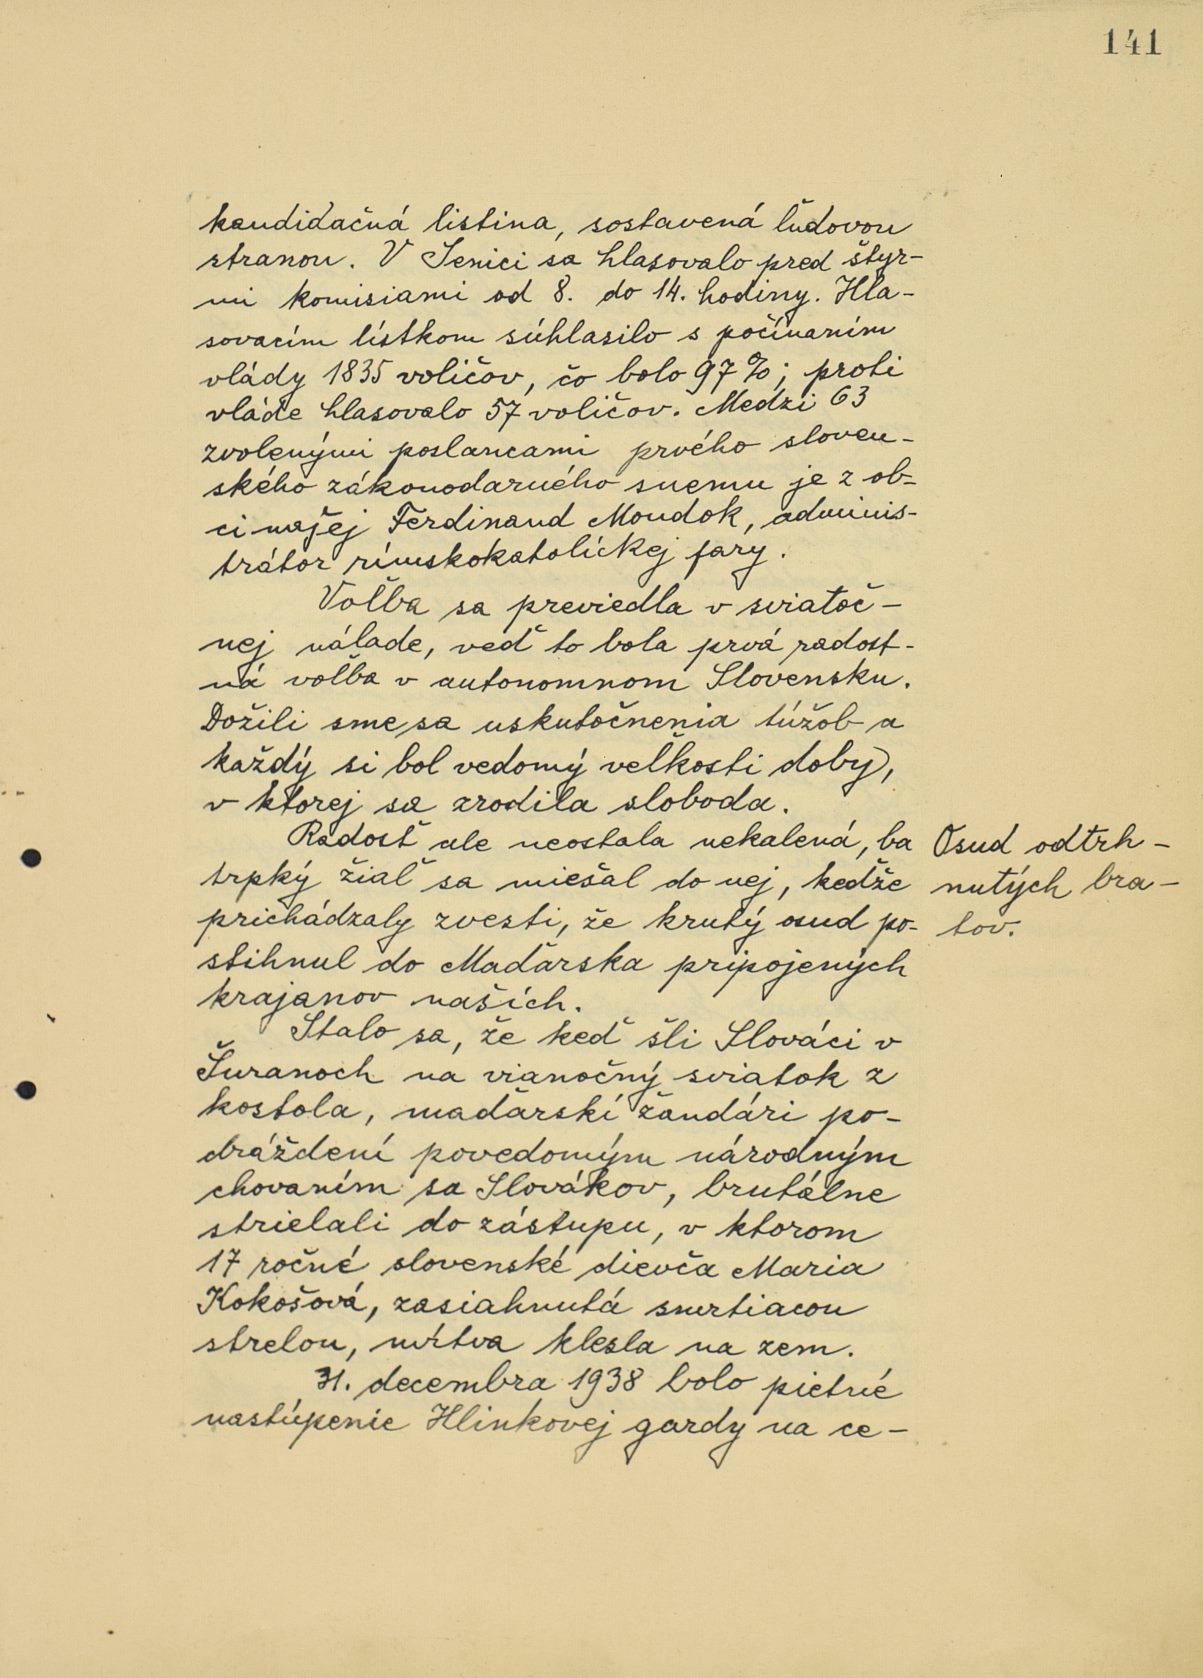 141
kandidačná listina, sostavená ľudovou
stranou. V Senici sa hlasovalo pred štyr-
mi komisiami od 8. do 14. hodiny. Hla-
sovacím lístkom súhlasilo s počínaním
vlády 1835 voličov, čo bolo 97%; proti
vláde hlasovalo 57 voličov. Medzi 63
zvolenými poslancami prvého sloven-
ského zákonodarného snemu je z ob-
ci našej Ferdinand Mondok, adminis-
trátor rímskokatolíckej fary.
Voľba sa previedla v sviatoč-
nej nálade, veď to bola prvá radost-
ná voľba v autonomnom Slovensku.
Dožili sme sa uskutočnenia túžob a
každý si bol vedomý veľkosti doby,
v ktorej sa zrodila sloboda.
Radosť ale neostala nekalená, ba
trpký žiaľ sa miešal do nej, kedže
prichádzaly zvesti, že krutý osud po-
stihnul do Maďarska pripojených
krajanov našich.
Osud odtrh-
nutých bra-
tov.
Stalo sa, že keď šli Slováci v
Šuranoch na vianočný sviatok z
kostola, maďarskí žandári po-
dráždení povedomým národným
chovaním sa Slovákov, brutálne
strielali do zástupu, v ktorom
17 ročné slovenské dievča Maria
Kokošová, zasiahnutá smrtiacou
strelou, mŕtva klesla na zem.
31. decembra 1938 bolo pietné
nastúpenie Hlinkovej gardy na ce-